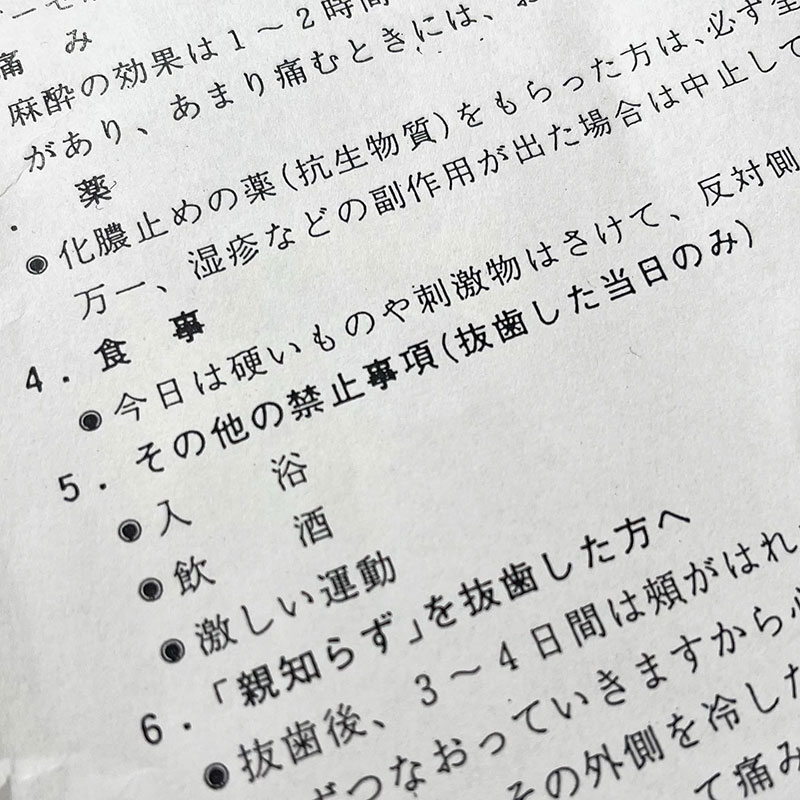 痛 み
麻酔の効果は1〜2時間
があり、あまり痛むときには、お
薬
◉ 化膿止めの薬(抗生物質)をもらった方は、必ず全
万一、湿疹などの副作用が出た場合は中止して
4. 食 事
◉ 今日は硬いものや刺激物はさけて、反対側
5. その他の禁止事項(抜歯した当日のみ)
◉ 入 浴
◉ 飲 酒
◉ 激しい運動
6. 「親知らず」を抜歯した方へ
◉ 抜歯後、3〜4日間は頬がはれ
ずつなおっていきますから心
その外側を冷した
て痛み